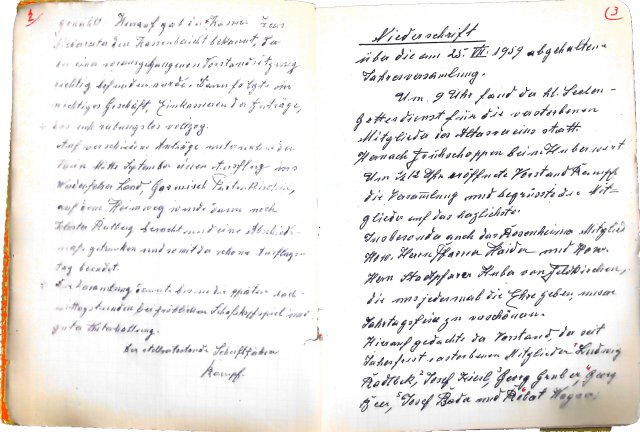 2
gewählt. Hierauf gab der Kassier
den Kassenbericht bekannt, der
in einer vorausgegangenen Vorstandssitzung
richtig befunden wurde. Dann folgte ein
wichtiges Geschäft, Einkassieren der Beiträge,
das sich reibungslos vollzog.
Auf verschiedene Anträge unternahm der
Verein Mitte September einen Ausflug ins
Werdenfelser Land, Garmisch Partenkirchen,
auf dem Heimweg wurde dann noch
Kloster Reutberg besucht und eine Abschieds-
maß getrunken und somit der schöne Ausflugs-
tag beendet.
Die Versammlung dauerte bis in die späten Nach-
mittagstunden bei fröhlichem Schafkopfspiel und
guter Unterhaltung.
Der stellvertretende Schriftführer
Kampf.
3
Niederschrift
über die am 25. VII. 1959 abgehaltene
Jahresversammlung.
Um 9 Uhr fand der hl. Seelen-
Gottesdienst für die verstorbenen
Mitglieder des Altersvereins statt.
Hernach Frühschoppen beim Huberwirt
Um 1/2 12 Uhr eröffnete Vorstand Kampf
die Versammlung und begrüsste die Mit-
glieder auf das herzlichste.
Insbesondere auch das Rosenheimer Mitglied
Hrn. Herrn Pfarrer Haider und Hrn.
Herrn Stadtpfarrer Huber von Feldkirchen,
die uns jedesmal die Ehre geben, unsere
Jahrtagsfeier zu verschönern.
Hierauf gedachte der Vorstand, der seit
Jahresfrist verstorbenen Mitglieder: Ludwig
2 Josef 3 Georg Gruber, 4 Georg
Beer, 5 Josef Bader und 6